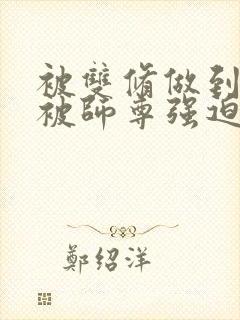 被雙脩做到
被師尊强迫
鄭绍洋